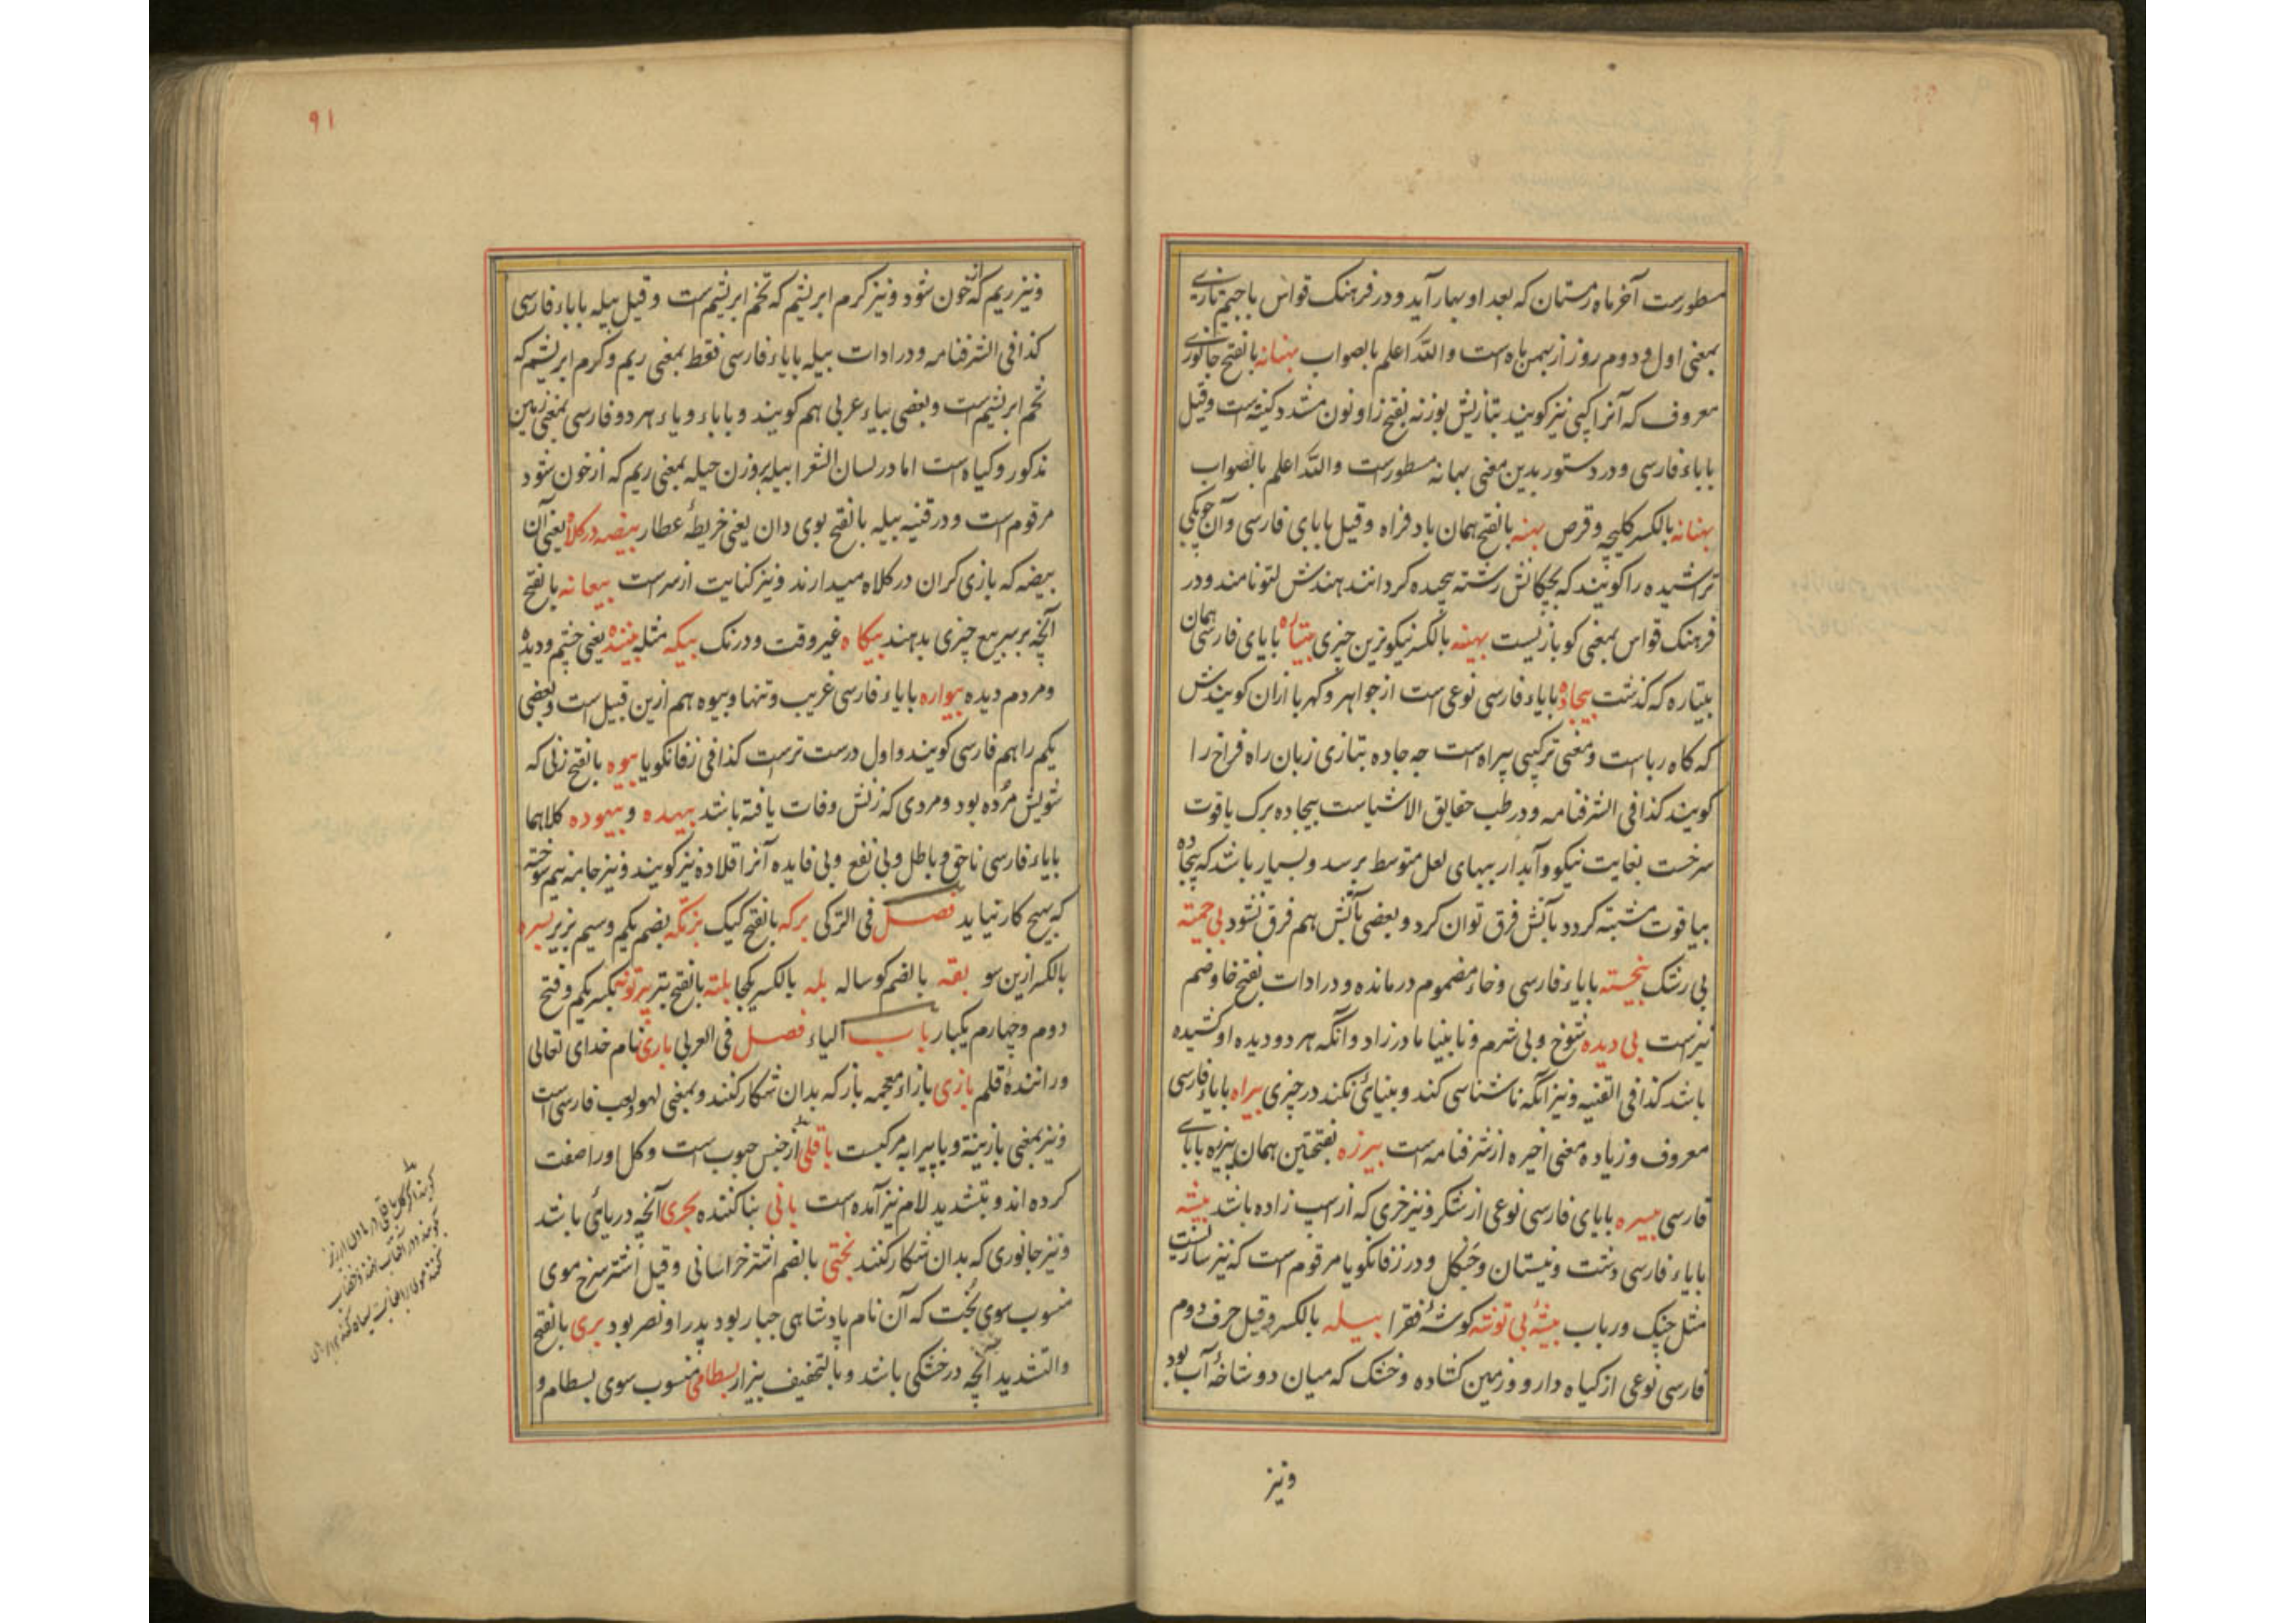 مسطورست آخر ماه زمستان که بعد او بهار آید و در فرهنک قواس با جیم تازی
بمعنی اول و دوم روز از بهمن ماه است والله اعلم بالصواب بهنانه بالفتح جانوری
معروف که آنرا کپی نیز کویند بتازیش بوزنه بفتح زا و نون مشدد کنیة است وقیل
باباء فارسی و در دستور بدین معنی بهانه مسطورست والله اعلم بالصواب
بهنانه بالکسر کلیچه و قرص بهنه بالفتح همان بادفراه وقیل بابای فارسی و آن چوبکی
تراشیده را کویند که بچکانش رشته پیچیده کردانند هندش لتو نامند و در
فرهنک قواس بمعنی کوبازیست بهینه بالکسر نیکوترین چیزی بیتاره بابای فارسی همان
بیتاره که کذشت بیجاده بایاء فارسی نوعی است از جواهر و کهربا ازان کویندش
که کاه ربا است و معنی ترکیبی بیراه است چه جاده بتازی زبان راه فراخ را
کویند کذا فی الشرفنامه و در طب حقایق الاشیاست بیجاده برک یاقوت
سرخست بغایت نیکو و آبدار ببهای لعل متوسط برسد و بسیار باشد که بیجاده
بیاقوت مشتبه کردد بآتش فرق توان کرد و بعضی بآتش هم فرق نشود بی حمیته
بی رشک بیخسته بایاء فارسی و خاء مضموم درمانده و در ادات بفتح خا و ضم
نیزست بی دیده شوخ و بی شرم و نابینا مادرزاد و آنکه هر دو دیده او کشیده
باشد کذا فی القنیه و نیز آنکه ناشناسی کند و بینائی نکند در چیزی بیراه بایاء فارسی
معروف و زیاده معنی اخیره از شرفنامه است بیرزه بفتحتین همان بیزیره بابای
فارسی بیسره بابای فارسی نوعی از شکر و نیز خری که از اسپ زاده باشد بیشه
بایاء فارسی دشت و نیستان و جنکل و در زفانکویا مرقوم است که نیز سازیست
مثل چنک و رباب بیشهٔ بی توشه کوشهٔ فقرا بیله بالکسر وقیل حرف دوم
فارسی نوعی از کیاه دارو و زمین کشاده و خشک که میان دو شاخهٔ آب بود
ونیز
۹۱
ونیز ریم که از خون شود و نیز کرم ابریشم که تخم ابریشم است وقیل بیله بایاء فارسی
کذا فی الشرفنامه و در ادات بیله بایاء فارسی فقط بمعنی ریم و کرم ابریشم که
تخم ابریشم است و بعضی بیاء عربی هم کویند و باباء و یاء هر دو فارسی بمعنی زمین
مذکور و کیاه است اما در لسان الشعرا بیله بروزن حیله بمعنی ریم که از خون شود
مرقوم است و در قنیه بیله بالفتح بوی دان یعنی خریطهٔ عطار بیضه در کلاه یعنی آن
بیضه که بازی کران در کلاه میدارند و نیز کنایت از سرست بیعانه بالفتح
آنچه بر سر بیع چیزی بدهند بیکاه غیر وقت و درنک بیکه مثله بیننده یعنی چشم و دیده
و مردم دیده بیواره بایاء فارسی غریب و تنها و بیوه هم ازین قبیل است و بعضی
یکم را هم فارسی کویند و اول درست ترست کذا فی زفانکویا بیوه بالفتح زنی که
شویش مرده بود و مردی که زنش وفات یافته باشد بیهده و بیهوده کلاهما
بایاء فارسی ناحق و باطل و بی نفع و بی فایده آنرا قلاده نیز کویند و نیز جامه نیم سوخته
که هیچ کار نیاید فصل فی الترکی برکه بالفتح کیک بزنکه بضم یکم وسیم بزیر بسره
بالکسر ازین سو بقه بالضم کوساله بله بالکسر یکجا بلته بالفتح تبر برتونه بکسر یکم و فتح
دوم و چهارم یکبار باب الیاء فصل فی العربی باری نام خدای تعالی
و رانندهٔ قلم بازی بازاء معجمه باز که بدان شکار کنند و بمعنی لهو و لعب فارسی است
و نیز بمعنی بازینه و با پیرایه مرکبست باقلی از جنس حبوب است و کل او را صفت
کرده اند و بتشدید لام نیز آمده است بانی بنا کننده بحری آنچه دریائی باشد
و نیز جانوری که بدان شکار کنند بختی بالضم اشتر خراسانی وقیل اشتر سرخ موی
منسوب سوی بخت که آن نام پادشاهی جبار بود پدر او نصر بود بری بالفتح
والتشدید آنچه در خشکی باشد و بالتخفیف بیزار بسطامی منسوب سوی بسطام و